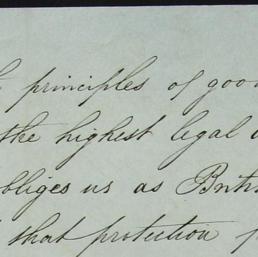 principles of good
the highest legal
obliges us as British
that protection